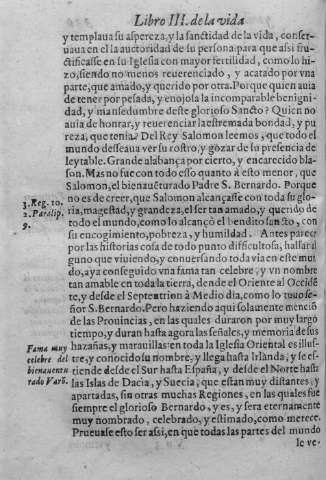 Libro III. de la vida
y templaua su aspereza, y la sanctidad de la vida, conser-
uaua en el la auctoridad de su persona para que assi fru-
ctificasse en su Iglesia con mayor fertilidad, como lo hi-
zo, siendo no menos reuerenciado, y acatado por vna
parte, que amado, y querido por otra. Porque quien auia
de tener por pesada, y enojosa la incomparable benigni-
dad, y mansedumbre deste glorioso Sancto? Quien no
auia de honrar, y reuerenciar la estremada bondad, y pu
reza, que tenia? Del Rey Salomon leemos, que todo el
mundo desseaua ver su rostro, y gozar de su presencia de
leytable. Grande alabança por cierto, y encarecido bla-
son. Mas no fue con todo esso quanto à esto menor, que
Salomon, el bienauẽturado Padre S. Bernardo. Porque
no es de creer, que Salomon alcançasse con toda su glo-
ria, magestad, y grandeza, el ser tan amado, y querido de
todo el mundo, como lo alcançò el bendito sancto, con
su encogimiento, pobreza, y humildad. Antes parece
por las historias cosa de todo punto difficultosa, hallar al
guno que viuiendo, y conuersando toda via en este mun
do, aya conseguido vna fama tan celebre, y vn nombre
tan amable en toda la tierra, dende el Oriente al Occidẽ
te, y desde el Septentrion à Medio dia, como lo tuuo se-
ñor S. Bernardo. Pero haziendo aqui solamente menciõ
de las Prouincias, en las quales duraron por muy largo
tiempo, y duran hasta agora las señales, y memoria de sus
hazañas, y marauillas: en toda la Iglesia Oriental es illus-
tre, y conocido su nombre, y llega hasta Irlãda, y se es-
tiende desde el Sur hasta España, y desde el Norte hasta
las Islas de Dacia, y Suecia, que estan muy distantes, y
apartadas, sin otras muchas Regiones, en las quales fue
siempre el glorioso Bernardo, y es, y sera eternamente
muy nombrado, celebrado, y estimado, como merece.
Prueuase esto ser assi, en que todas las partes del mundo
le ve-
3. Reg. 10.
2. Paralip.
9.
Fama muy
celebre del
bienauentu
rado Varõ.